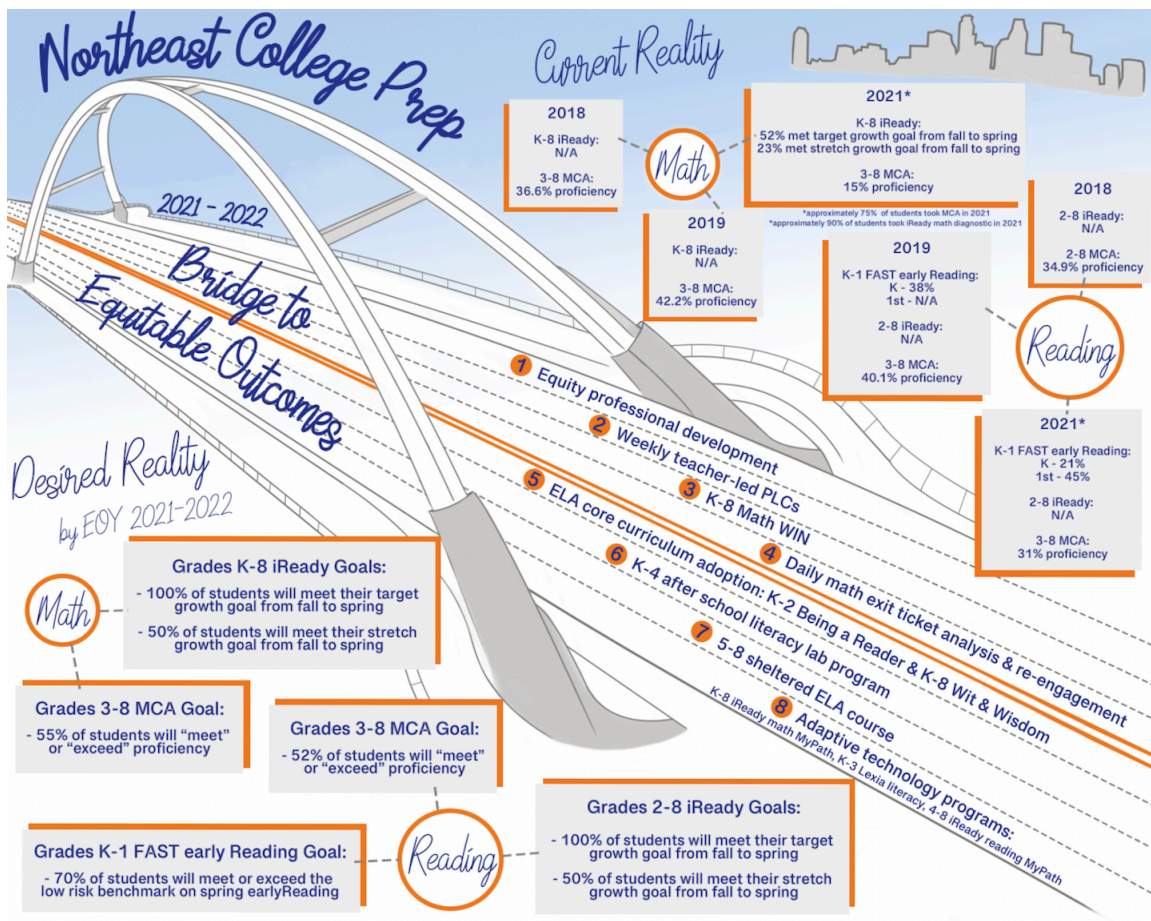 Northeast College Prep
2021 - 2022
Bridge to
Equitable Outcomes
Current Reality
Math
2018
K-8 iReady:
N/A
3-8 MCA:
36.6% proficiency
2019
K-8 iReady:
N/A
3-8 MCA:
42.2% proficiency
2021*
K-8 iReady:
52% met target growth goal from fall to spring
23% met stretch growth goal from fall to spring
3-8 MCA:
15% proficiency
*approximately 75% of students took MCA in 2021
*approximately 90% of students took iReady math diagnostic in 2021
Reading
2018
2-8 iReady:
N/A
2-8 MCA:
34.9% proficiency
2019
K-1 FAST early Reading:
K - 38%
1st - N/A
2-8 iReady:
N/A
3-8 MCA:
40.1% proficiency
2021*
K-1 FAST early Reading:
K - 21%
1st - 45%
2-8 iReady:
N/A
3-8 MCA:
31% proficiency
1 Equity professional development
2 Weekly teacher-led PLCs
3 K-8 Math WIN
4 Daily math exit ticket analysis & re-engagement
5 ELA core curriculum adoption: K-2 Being a Reader & K-8 Wit & Wisdom
6 K-4 after school literacy lab program
7 5-8 sheltered ELA course
8 Adaptive technology programs:
K-8 iReady math MyPath, K-3 Lexia literacy, 4-8 iReady reading MyPath
Desired Reality
by EOY 2021-2022
Math
Grades K-8 iReady Goals:
- 100% of students will meet their target
growth goal from fall to spring
- 50% of students will meet their stretch
growth goal from fall to spring
Grades 3-8 MCA Goal:
- 55% of students will "meet"
or "exceed" proficiency
Reading
Grades 3-8 MCA Goal:
- 52% of students will "meet"
or "exceed" proficiency
Grades K-1 FAST early Reading Goal:
- 70% of students will meet or exceed the
low risk benchmark on spring earlyReading
Grades 2-8 iReady Goals:
- 100% of students will meet their target
growth goal from fall to spring
- 50% of students will meet their stretch
growth goal from fall to spring